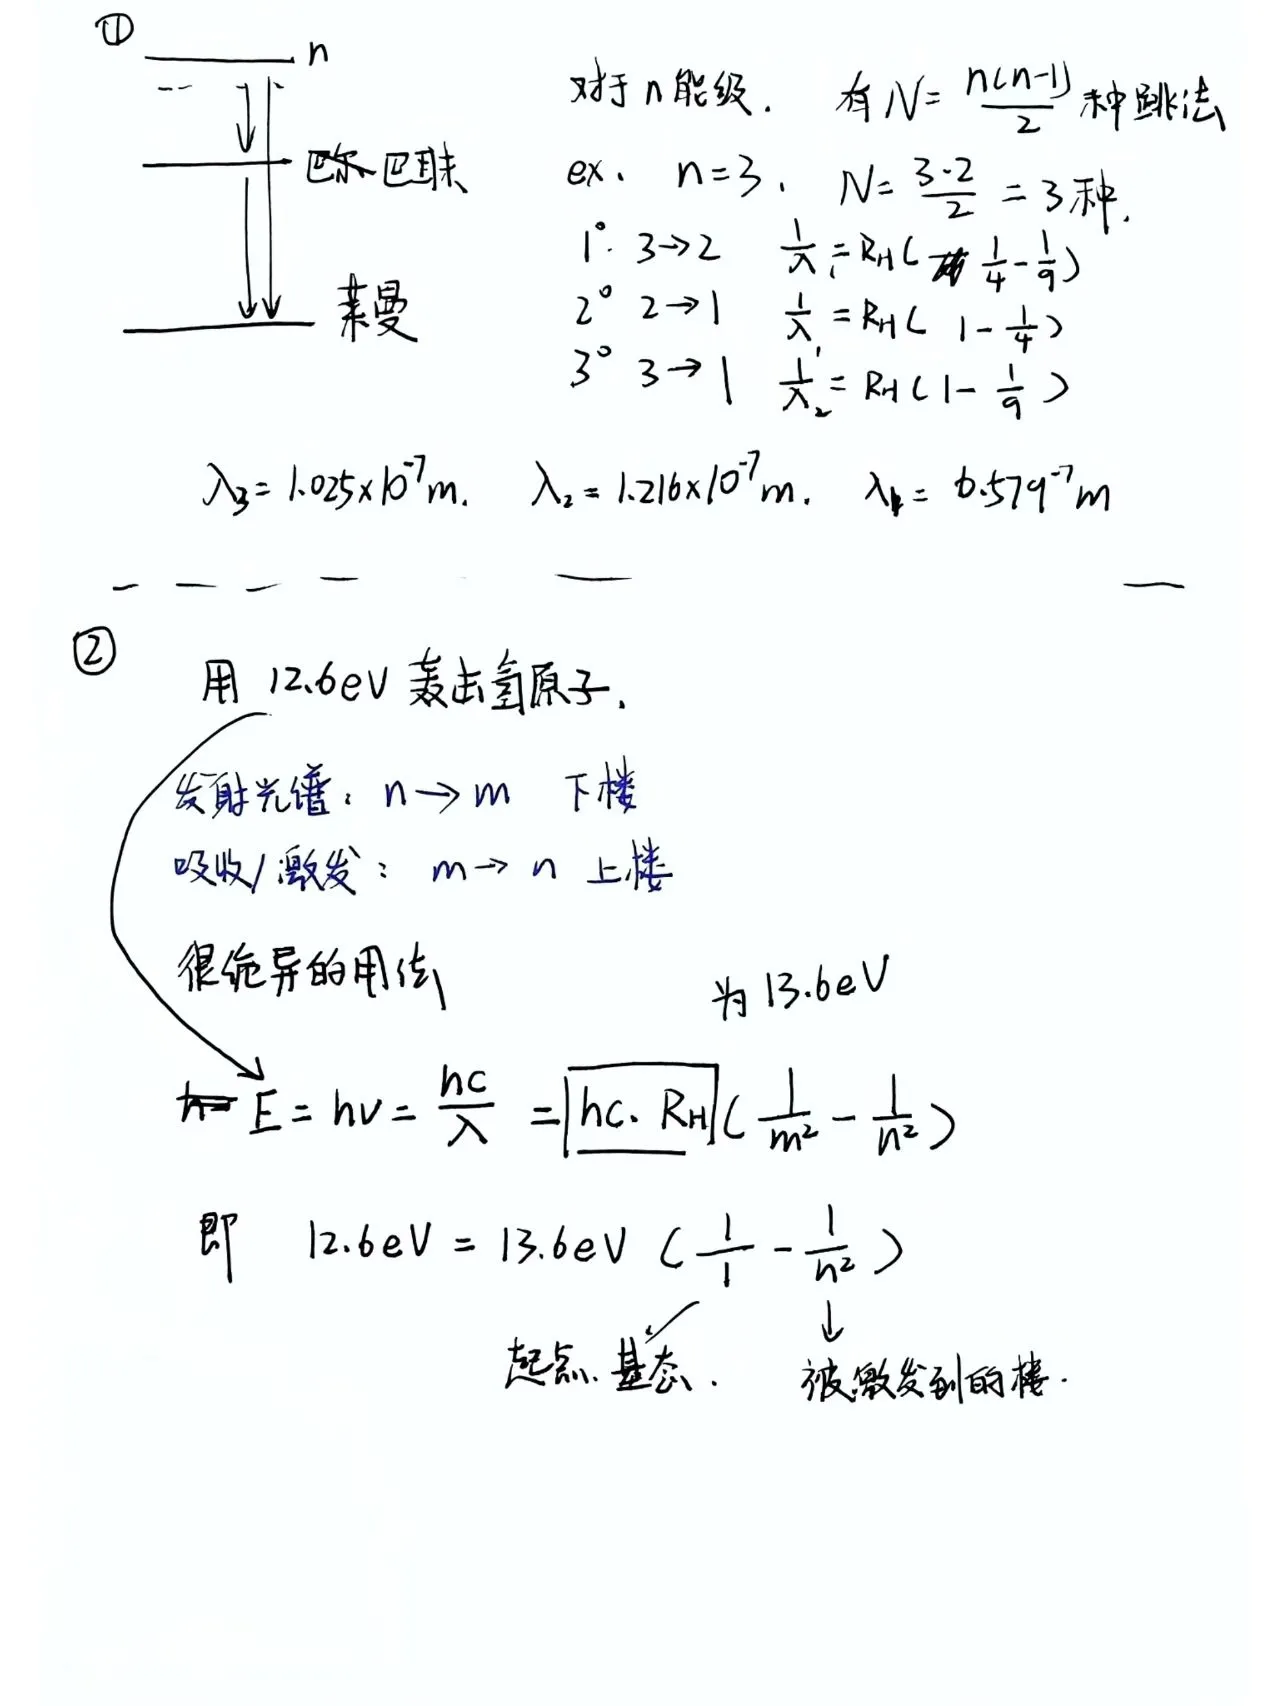 ①
n
对于n能级. 有N=n(n-1)/2种跳法
巴尔 巴耳末
ex. n=3. N=3·2/2=3种.
1° 3→2 1/λ₁=R_H(1/4-1/9)
2° 2→1 1/λ₁=R_H(1-1/4)
莱曼
3° 3→1 1/λ₂=R_H(1-1/9)
λ₃=1.025×10⁻⁷m. λ₂=1.216×10⁻⁷m. λ₁=6.579⁻⁷m
②
用12.6eV轰击氢原子.
发射光谱: n→m 下楼
吸收/激发: m→n 上楼
很诡异的用法
为13.6eV
E=hν=hc/λ=hc·R_H(1/m²-1/n²)
即 12.6eV=13.6eV(1/1-1/n²)
起点.基态. 被激发到的楼.